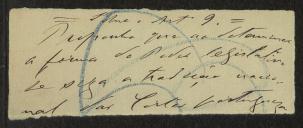 = Ao Art 9. =
Proponho que ao determinar
a forma do Poder legislativo
se siga a tradição nacio-
nal das Cortes portuguezas